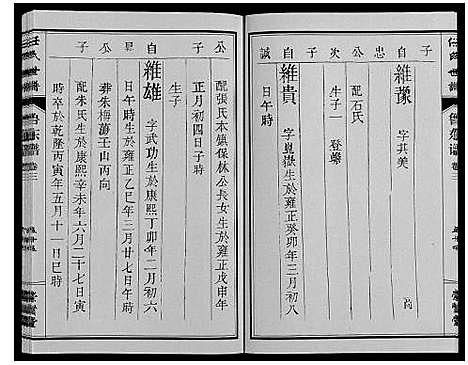 子自忠公次子自誠
維藻 字其美
配石氏
生子一 登鰲
維貴 字崑嶽生於雍正癸卯年三月初八
日午時
公子自昆公子
配張氏本鎮保林公長女生於雍正戊申年
正月初四日子時
生子
維雄 字武功生於康熙丁卯年二月初六
日午時生於雍正乙巳年三月廿七日午時
葬朱梅蕩壬山丙向
配朱氏生於康熙辛未年六月二十七日寅
時卒於乾隆丙寅年五月十一日巳時